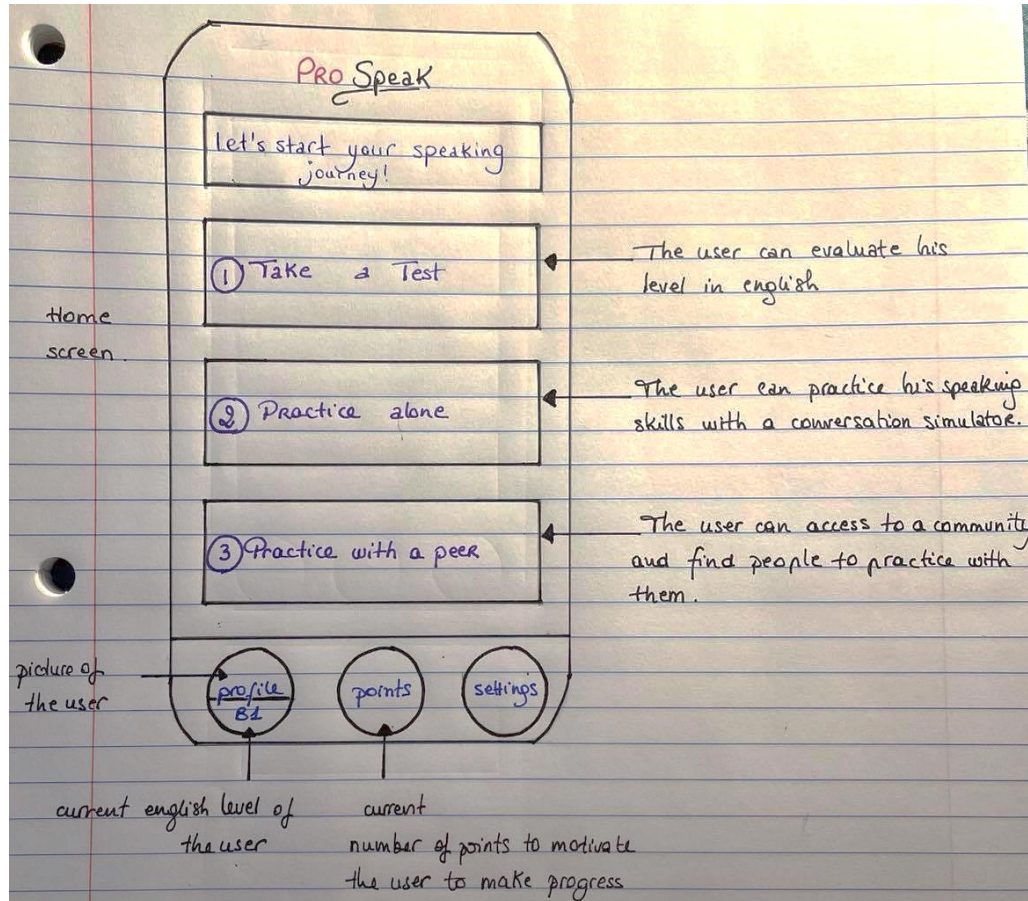 PRO Speak
Let's start your speaking
journey!
1 Take a Test
The user can evaluate his
level in english
Home
screen.
2 Practice alone
The user can practice his speaking
skills with a conversation simulator.
3 Practice with a peer
The user can access to a community
and find people to practice with
them.
picture of
the user
profile
B1
points
settings
current english level of
the user
current
number of points to motivate
the user to make progress